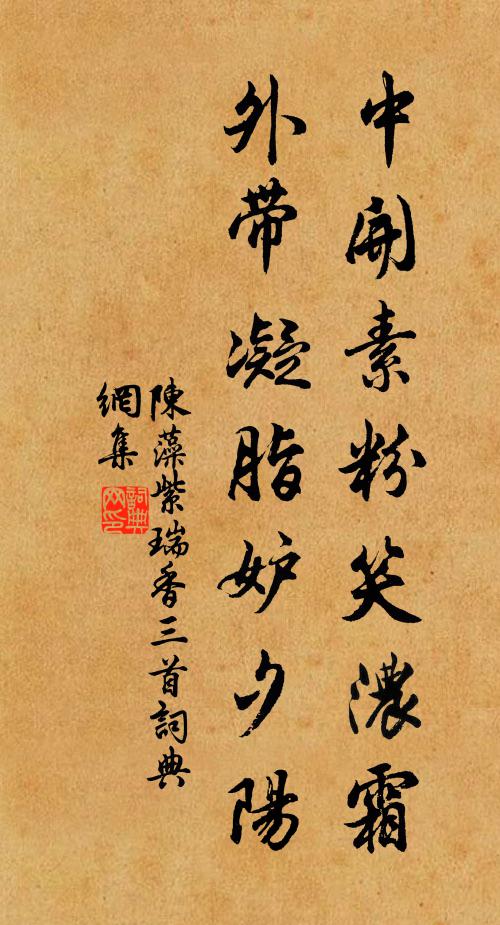 中開素粉笑濃霜
外帶凝脂妒夕陽
陳藻紫瑞香三首詞典
網集
詞典
网印